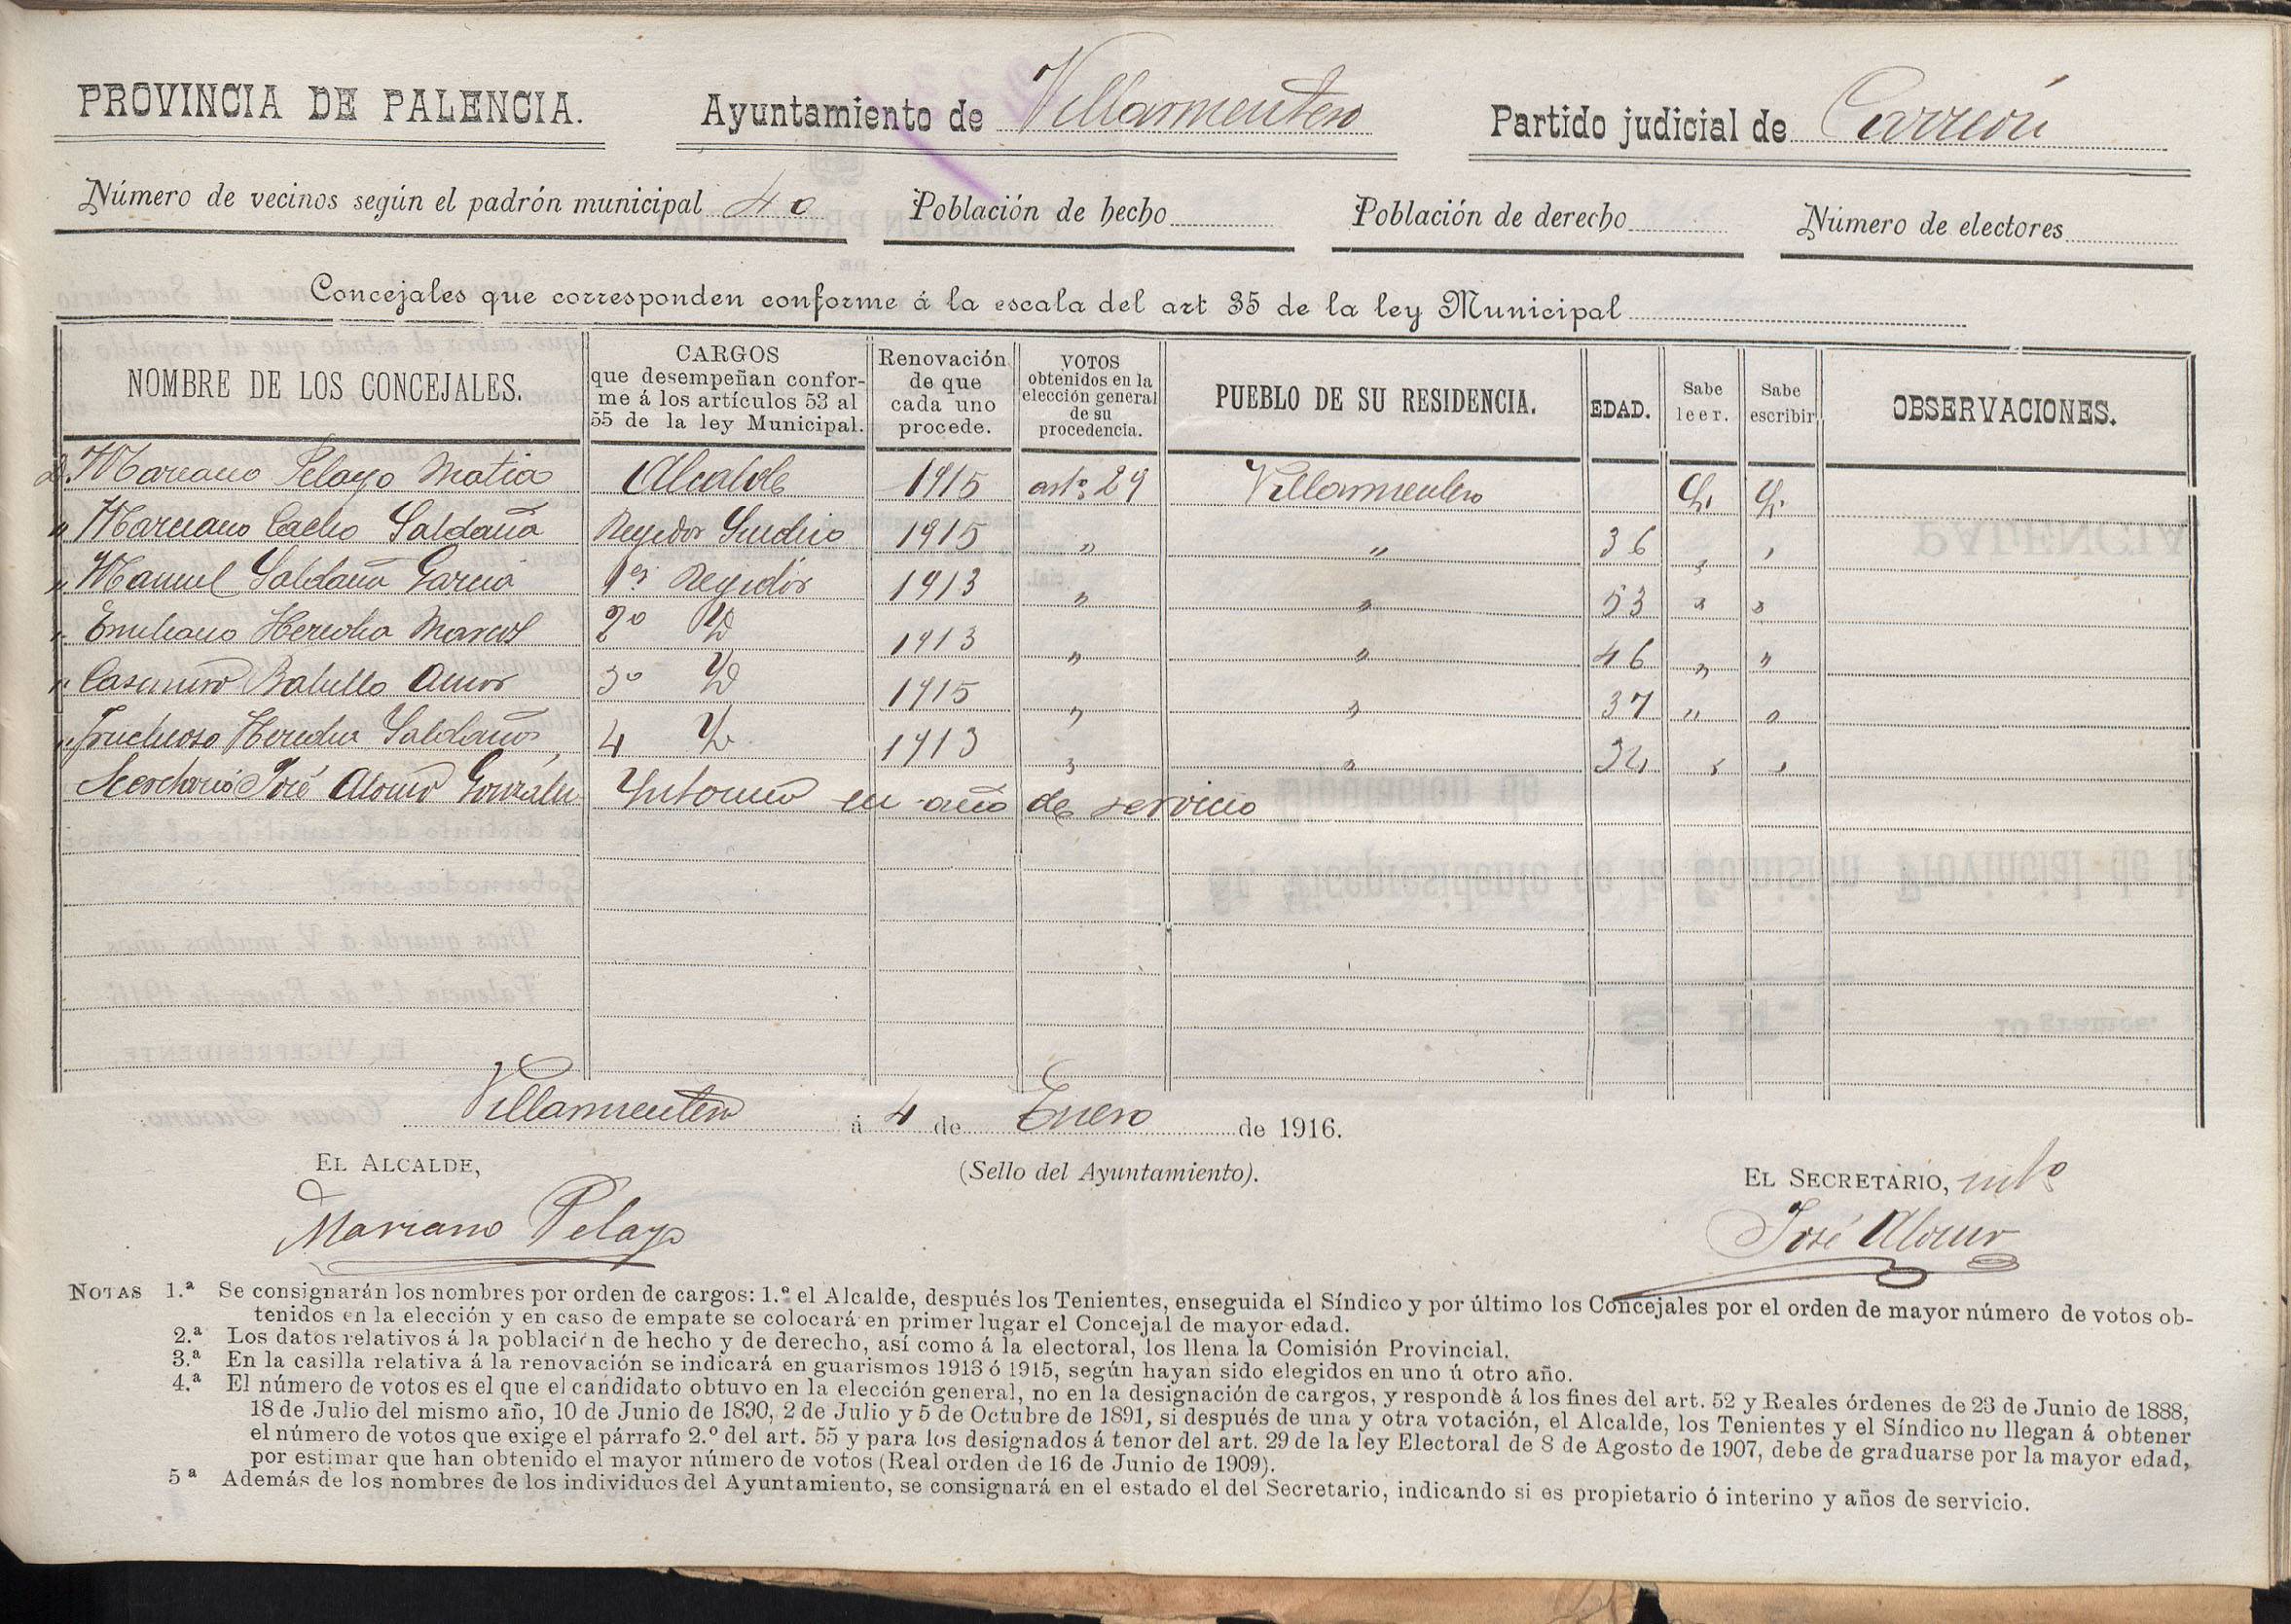 PROVINCIA DE PALENCIA. Ayuntamiento de Villarmentero Partido judicial de Carrión
Número de vecinos según el padrón municipal 40 Población de hecho Población de derecho Número de electores
Concejales que corresponden conforme á la escala del art 35 de la ley Municipal
NOMBRE DE LOS CONCEJALES. CARGOS que desempeñan conforme á los artículos 53 al 55 de la ley Municipal. Renovación de que cada uno procede. VOTOS obtenidos en la elección general de su procedencia. PUEBLO DE SU RESIDENCIA. EDAD. Sabe leer. Sabe escribir OBSERVACIONES.
D. Mariano Pelayo Matia Alcalde 1915 artº 29 Villarmentero Si Si
" Marciano Cacho Saldaña Regidor Sindico 1915 " " 36 " "
" Manuel Saldaña Garcia 1er Regidor 1913 " " 53 " "
" Emiliano Heredia Marcos 2º Id 1913 " " 46 " "
" Casimiro Rabillo Amor 3º Id 1915 " " 37 " "
" Fructuoso Heredia Saldaña 4 Id 1913 " " 32 " "
Secretario José Alonso González Interino un año de servicio
Villarmentero á 4 de Enero de 1916.
EL ALCALDE, (Sello del Ayuntamiento). EL SECRETARIO, intº
Mariano Pelayo José Alonso
NOTAS 1.ª Se consignarán los nombres por orden de cargos: 1.º el Alcalde, después los Tenientes, enseguida el Síndico y por último los Concejales por el orden de mayor número de votos ob-
tenidos en la elección y en caso de empate se colocará en primer lugar el Concejal de mayor edad.
2.ª Los datos relativos á la población de hecho y de derecho, así como á la electoral, los llena la Comisión Provincial.
3.ª En la casilla relativa á la renovación se indicará en guarismos 1913 ó 1915, según hayan sido elegidos en uno ú otro año.
4.ª El número de votos es el que el candidato obtuvo en la elección general, no en la designación de cargos, y responde á los fines del art. 52 y Reales órdenes de 23 de Junio de 1888,
18 de Julio del mismo año, 10 de Junio de 1890, 2 de Julio y 5 de Octubre de 1891, si después de una y otra votación, el Alcalde, los Tenientes y el Síndico no llegan á obtener
el número de votos que exige el párrafo 2.º del art. 55 y para los designados á tenor del art. 29 de la ley Electoral de 8 de Agosto de 1907, debe de graduarse por la mayor edad,
por estimar que han obtenido el mayor número de votos (Real orden de 16 de Junio de 1909).
5ª Además de los nombres de los individuos del Ayuntamiento, se consignará en el estado el del Secretario, indicando si es propietario ó interino y años de servicio.